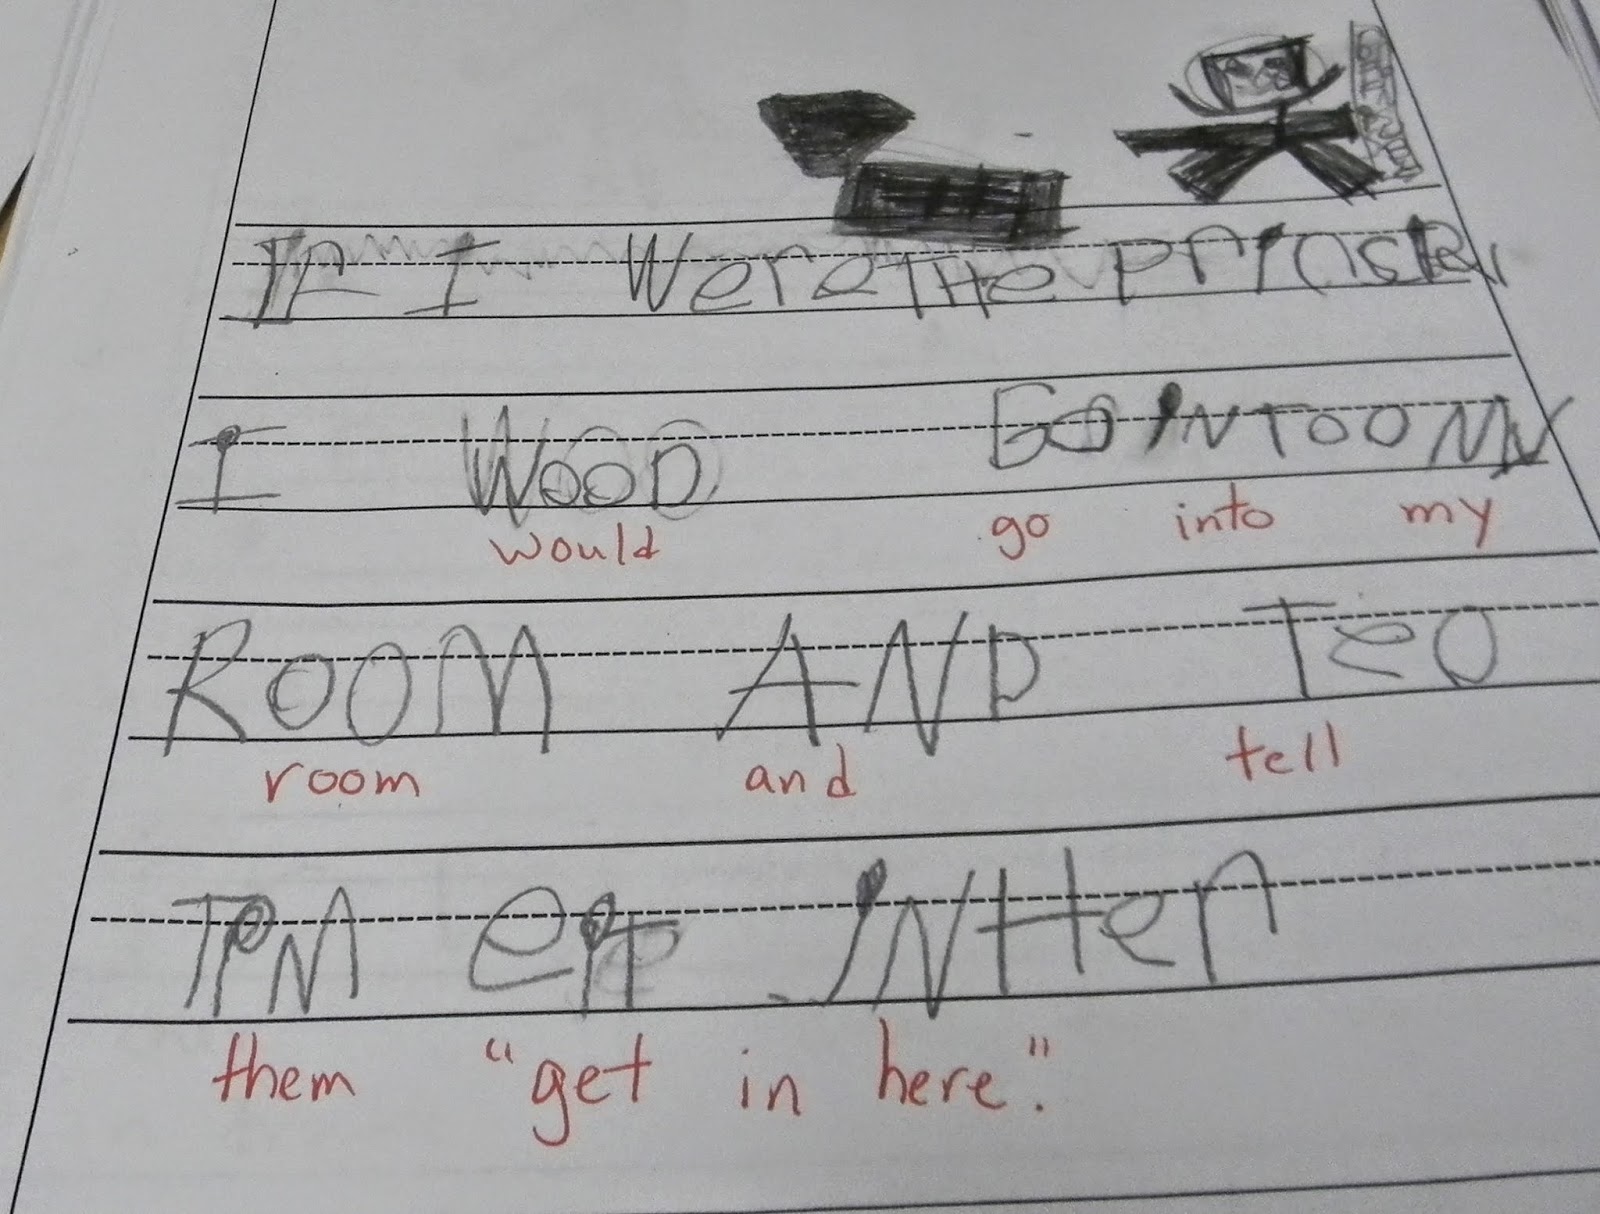 IF I Were THe
I WOOD GO INTOO MY
would go into my
ROOM AND Teo
room and tell
TPM INHer
them "get in here".